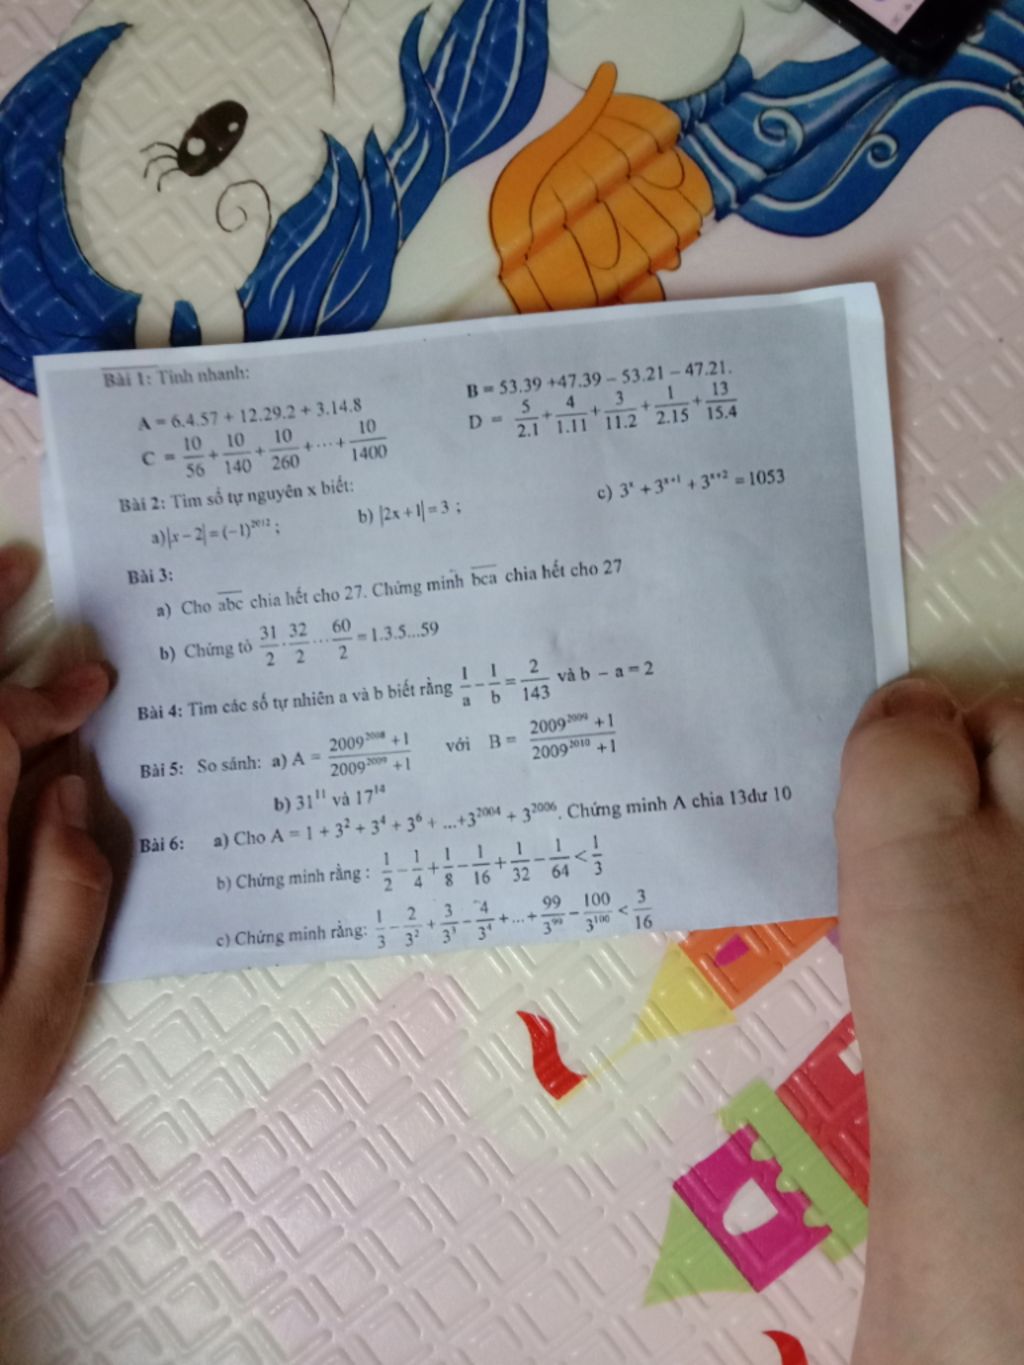 Bài 1: Tính nhanh:
A = 6.4.57 + 12.29.2 + 3.14.8
B = 53.39 +47.39 – 53.21 – 47.21.
C = 10/56 + 10/140 + 10/260 + ... + 10/1400
D = 5/2.1 + 4/1.11 + 3/11.2 + 1/2.15 + 13/15.4
Bài 2: Tìm số tự nguyên x biết:
a) |x – 2| = (–1)²⁰¹² ;
b) |2x + 1| = 3 ;
c) 3ˣ + 3ˣ⁺¹ + 3ˣ⁺² = 1053
Bài 3:
a) Cho abc chia hết cho 27. Chứng minh bca chia hết cho 27
b) Chứng tỏ 31/2 . 32/2 ... 60/2 = 1.3.5...59
Bài 4: Tìm các số tự nhiên a và b biết rằng 1/a – 1/b = 2/143 và b – a = 2
Bài 5: So sánh: a) A = (2009²⁰⁰⁸ + 1)/(2009²⁰⁰⁹ + 1) với B = (2009²⁰⁰⁹ + 1)/(2009²⁰¹⁰ + 1)
b) 31¹¹ và 17¹⁴
Bài 6: a) Cho A = 1 + 3² + 3⁴ + 3⁶ + ...+3²⁰⁰⁴ + 3²⁰⁰⁶. Chứng minh A chia 13dư 10
b) Chứng minh rằng : 1/2 – 1/4 + 1/8 – 1/16 + 1/32 – 1/64 < 1/3
c) Chứng minh rằng: 1/3 – 2/3² + 3/3³ – 4/3⁴ + ... + 99/3⁹⁹ – 100/3¹⁰⁰ < 3/16